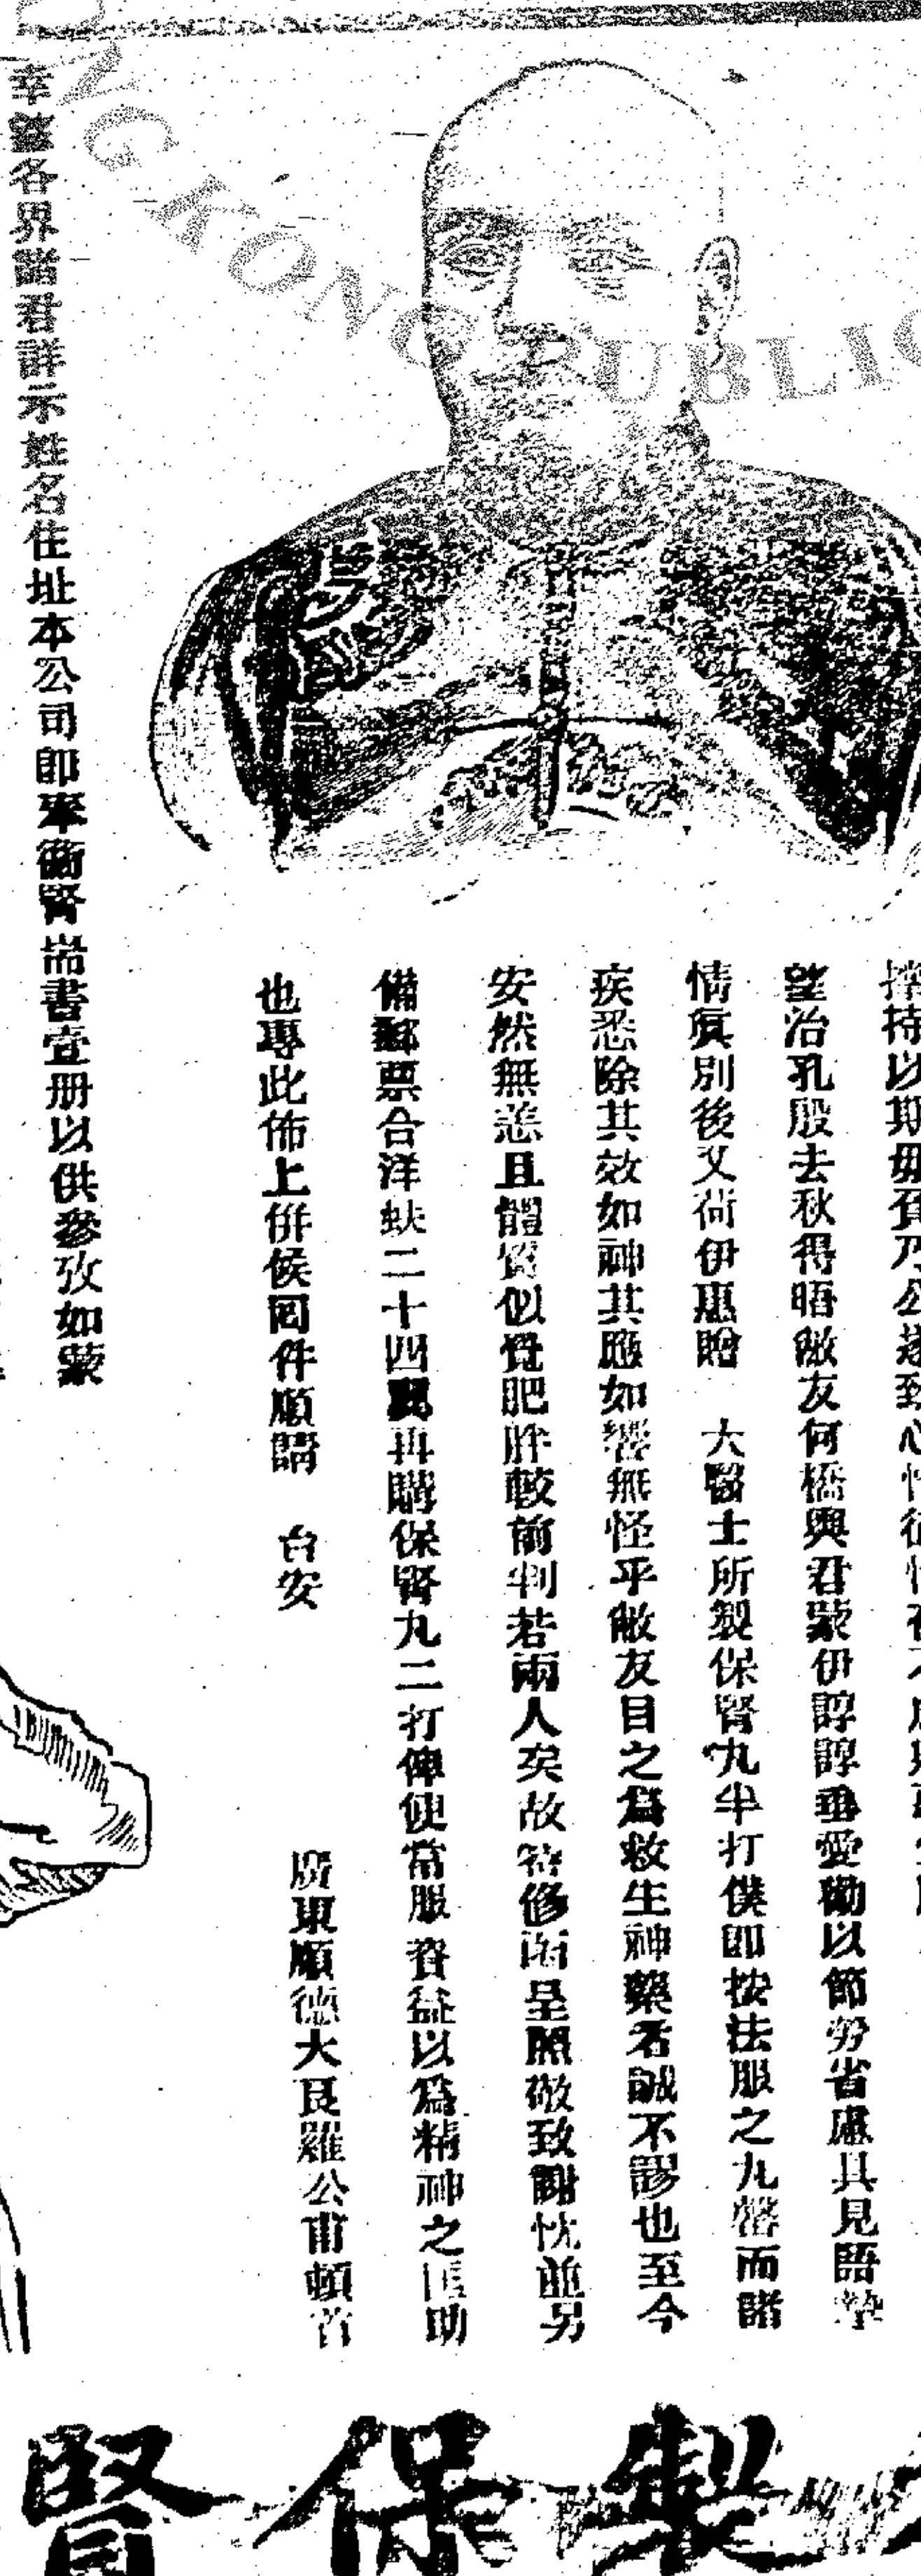 持以期
望治孔殷去秋得晤敝友何橋與君蒙伊諄諄垂愛勸以節勞省慮具見語摯
情眞別後又荷伊惠贈 大醫士所製保腎丸半打僕即按法服之丸罄而諸
疾悉除其效如神其應如響無怪乎敝友目之爲救生神藥者誠不謬也至今
安然無恙且體質似覺肥胖較前判若兩人矣故特修函呈照敬致謝忱並另
備郵票合洋蚨二十四再購保腎丸二打俾使常服資益以爲精神之匡助
也專此佈上併候囘件順請 台安
廣東順德大良羅公甫頓首
幸滋各界諸君詳示姓名住址本公司即奉衛腎耑書壹册以供參攷如蒙
製保腎
HONG KONG PUBLIC